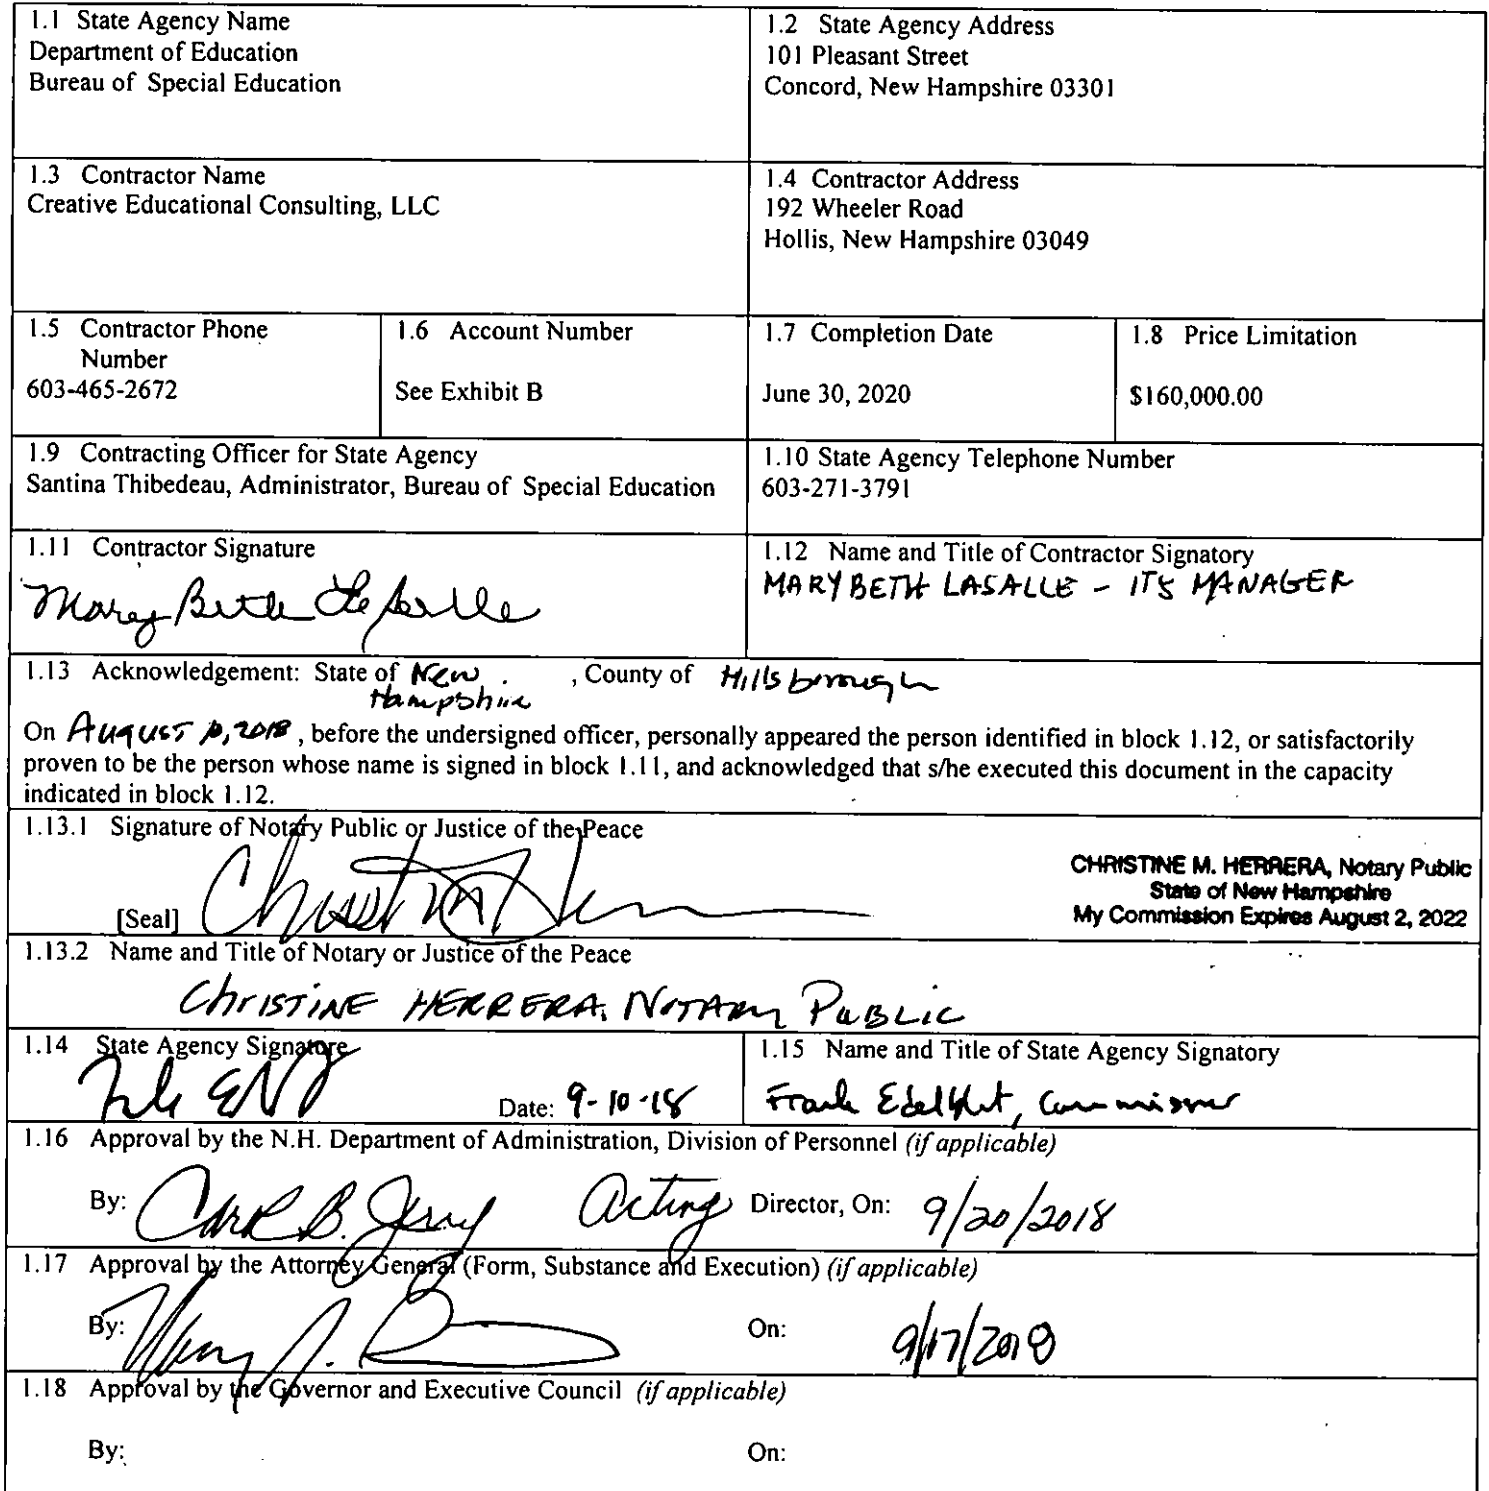 1.1 State Agency Name
Department of Education
Bureau of Special Education
1.2 State Agency Address
101 Pleasant Street
Concord, New Hampshire 03301
1.3 Contractor Name
Creative Educational Consulting, LLC
1.4 Contractor Address
192 Wheeler Road
Hollis, New Hampshire 03049
1.5 Contractor Phone
Number
603-465-2672
1.6 Account Number
See Exhibit B
1.7 Completion Date
June 30, 2020
1.8 Price Limitation
$160,000.00
1.9 Contracting Officer for State Agency
Santina Thibedeau, Administrator, Bureau of Special Education
1.10 State Agency Telephone Number
603-271-3791
1.11 Contractor Signature
Mary Beth LaSalle
1.12 Name and Title of Contractor Signatory
MARY BETH LASALLE - ITS MANAGER
1.13 Acknowledgement: State of New Hampshire, County of Hillsborough
On August, 2018, before the undersigned officer, personally appeared the person identified in block 1.12, or satisfactorily
proven to be the person whose name is signed in block 1.11, and acknowledged that s/he executed this document in the capacity
indicated in block 1.12.
1.13.1 Signature of Notary Public or Justice of the Peace
[Seal]
CHRISTINE M. HERRERA, Notary Public
State of New Hampshire
My Commission Expires August 2, 2022
1.13.2 Name and Title of Notary or Justice of the Peace
CHRISTINE HERRERA, NOTARY PUBLIC
1.14 State Agency Signature
Date: 9-10-18
1.15 Name and Title of State Agency Signatory
Frank Edelblut, Commissioner
1.16 Approval by the N.H. Department of Administration, Division of Personnel (if applicable)
By: Acting Director, On: 9/20/2018
1.17 Approval by the Attorney General (Form, Substance and Execution) (if applicable)
By: On: 9/17/2018
1.18 Approval by the Governor and Executive Council (if applicable)
By: On: